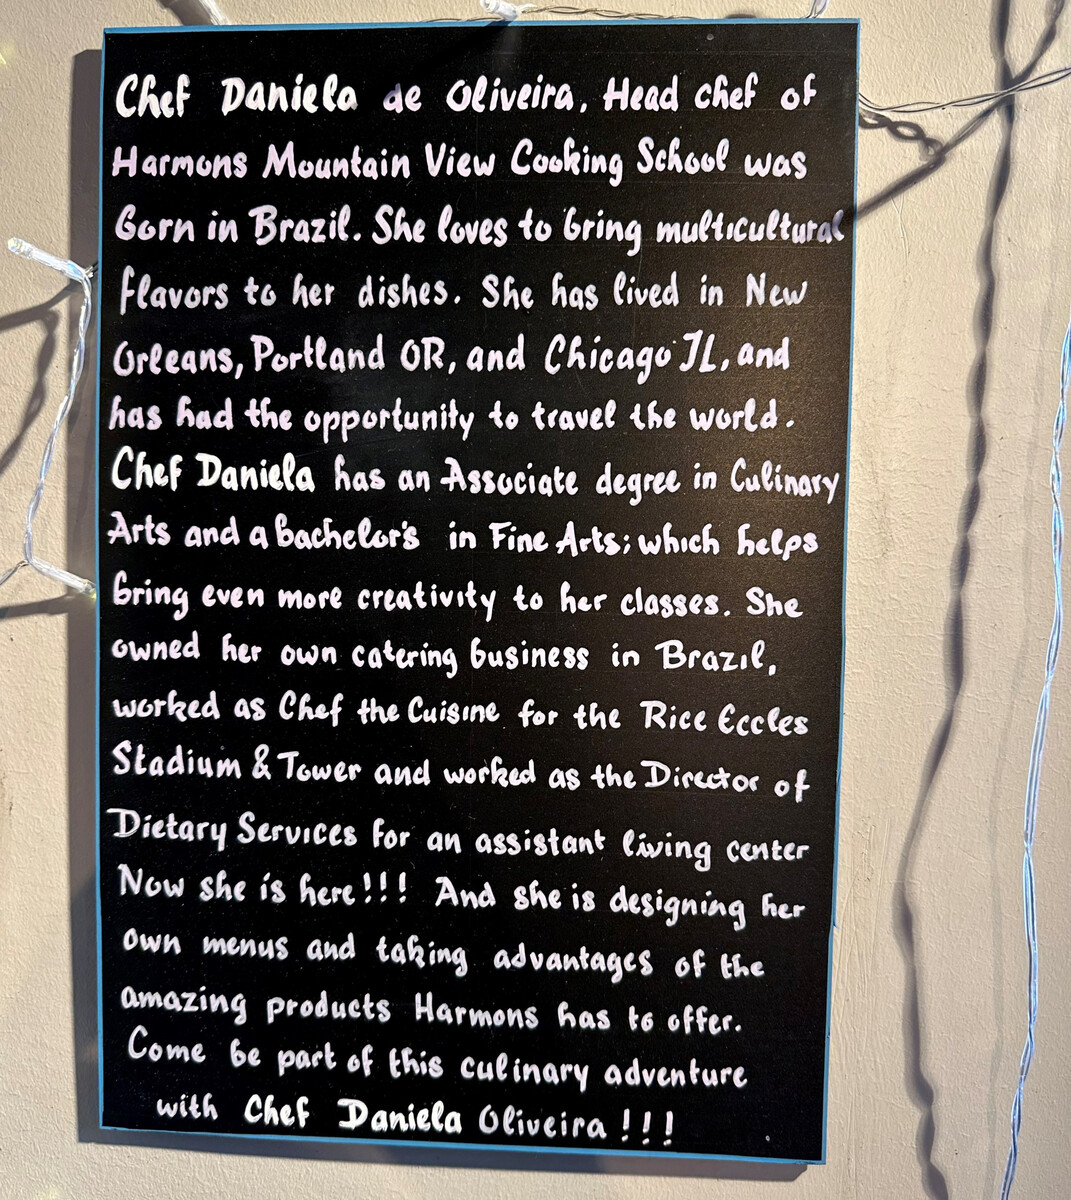 Chef Daniela de Oliveira, Head chef of
Harmons Mountain View Cooking School was
born in Brazil. She loves to bring multicultural
flavors to her dishes. She has lived in New
Orleans, Portland OR, and Chicago IL, and
has had the opportunity to travel the world.
Chef Daniela has an Associate degree in Culinary
Arts and a bachelor's in Fine Arts; which helps
bring even more creativity to her classes. She
owned her own catering business in Brazil,
worked as Chef the Cuisine for the Rice Eccles
Stadium & Tower and worked as the Director of
Dietary Services for an assistant living center
Now she is here!!! And she is designing her
own menus and taking advantages of the
amazing products Harmons has to offer.
Come be part of this culinary adventure
with Chef Daniela Oliveira!!!